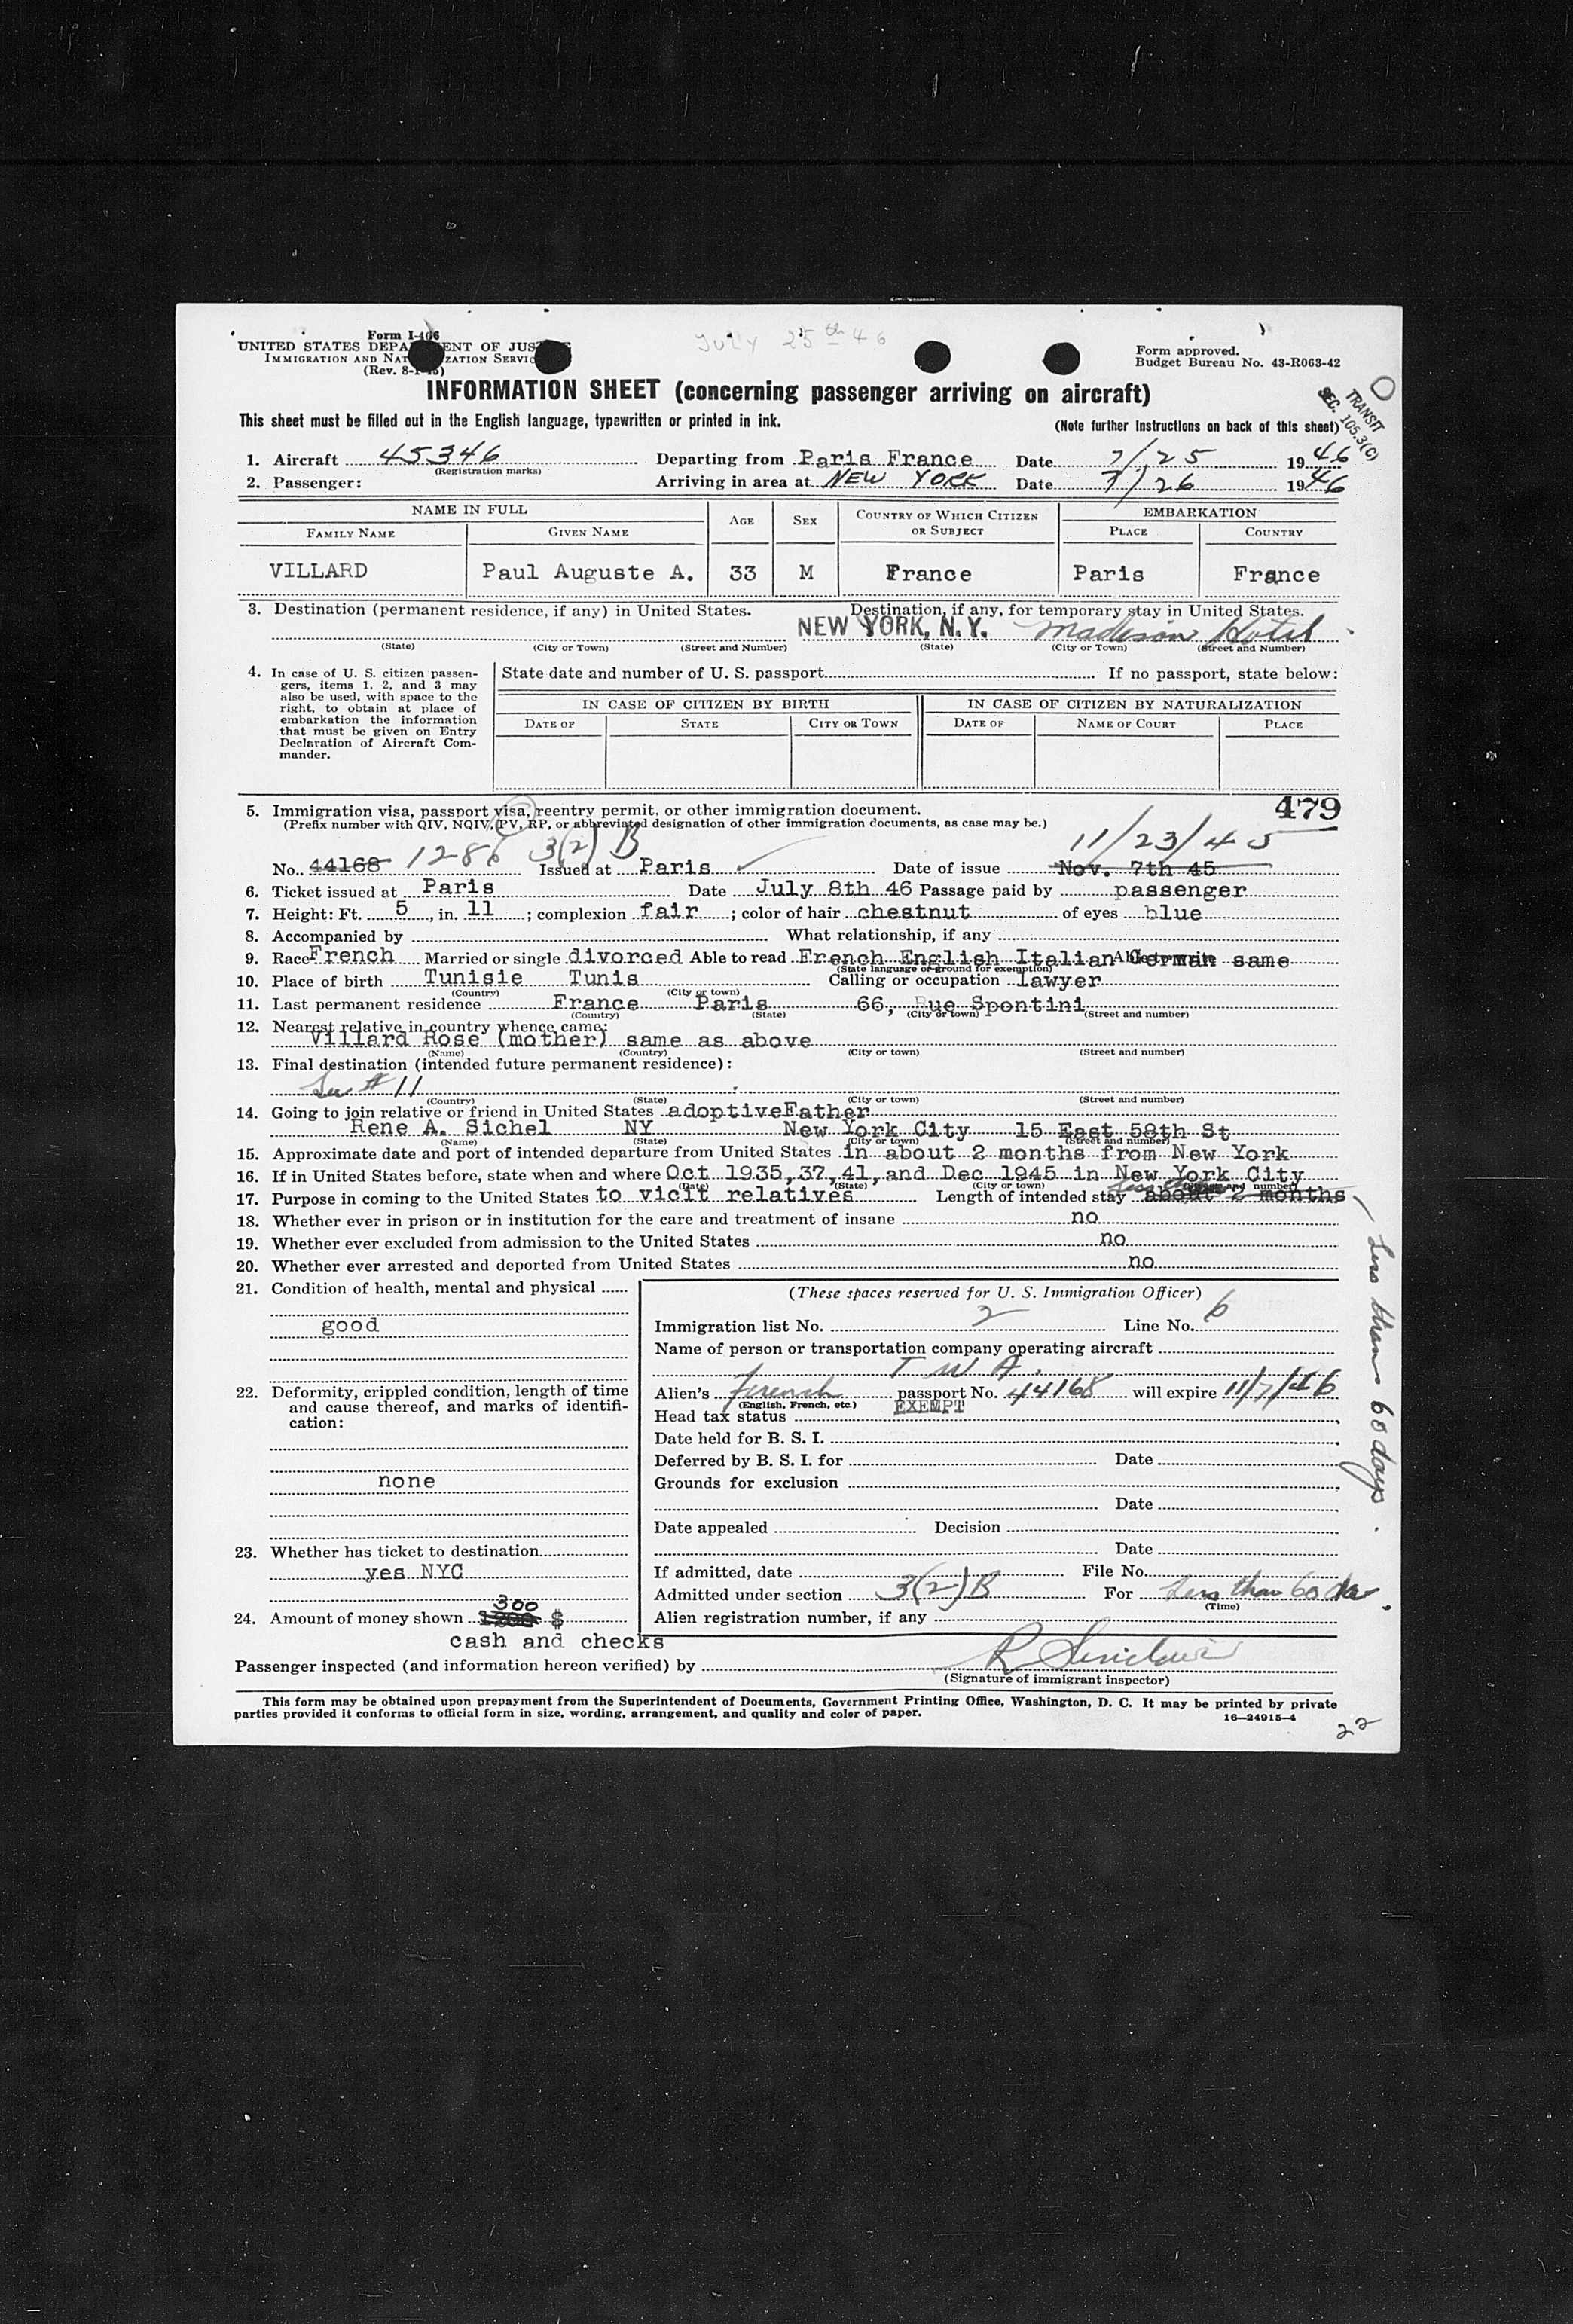 July 25th 46
Form I-466
UNITED STATES DEPARTMENT OF JUSTICE
IMMIGRATION AND NATURALIZATION SERVICE
(Rev. 8-1-45)
Form approved.
Budget Bureau No. 43-R063-42
INFORMATION SHEET (concerning passenger arriving on aircraft)
TRANSIT
SEC. 105.3(C)
This sheet must be filled out in the English language, typewritten or printed in ink. (Note further instructions on back of this sheet)
1. Aircraft 45346 Departing from Paris France Date 7/25 1946
(Registration marks)
2. Passenger: Arriving in area at NEW YORK Date 7/26 1946
NAME IN FULL AGE SEX COUNTRY OF WHICH CITIZEN OR SUBJECT EMBARKATION
FAMILY NAME GIVEN NAME PLACE COUNTRY
VILLARD Paul Auguste A. 33 M France Paris France
3. Destination (permanent residence, if any) in United States. Destination, if any, for temporary stay in United States.
NEW YORK, N.Y. Madison Hotel
(State) (City or Town) (Street and Number) (State) (City or Town) (Street and Number)
4. In case of U. S. citizen passengers, items 1, 2, and 3 may also be used, with space to the right, to obtain at place of embarkation the information that must be given on Entry Declaration of Aircraft Commander.
State date and number of U. S. passport If no passport, state below:
IN CASE OF CITIZEN BY BIRTH IN CASE OF CITIZEN BY NATURALIZATION
DATE OF STATE CITY OR TOWN DATE OF NAME OF COURT PLACE
5. Immigration visa, passport visa, reentry permit, or other immigration document. 479
(Prefix number with QIV, NQIV, PV, RP, or abbreviated designation of other immigration documents, as case may be.)
11/23/45
No. 44168 1286 3(2) B Issued at Paris Date of issue Nov. 7th 45
6. Ticket issued at Paris Date July 8th 46 Passage paid by passenger
7. Height: Ft. 5, in. 11; complexion fair; color of hair chestnut of eyes blue
8. Accompanied by What relationship, if any
9. Race French Married or single divorced Able to read French English Italian German same
(State language or ground for exemption)
10. Place of birth Tunisie Tunis Calling or occupation lawyer
(Country) (City or town)
11. Last permanent residence France Paris 66, Rue Spontini
(Country) (State) (City or town) (Street and number)
12. Nearest relative in country whence came:
Villard Rose (mother) same as above
(Name) (Country) (City or town) (Street and number)
13. Final destination (intended future permanent residence):
See # 11
(Country) (State) (City or town) (Street and number)
14. Going to join relative or friend in United States adoptiveFather
Rene A. Sichel NY New York City 15 East 58th St
(Name) (State) (City or town) (Street and number)
15. Approximate date and port of intended departure from United States in about 2 months from New York
16. If in United States before, state when and where Oct 1935,37,41,and Dec 1945 in New York City
(Date) (State) (City or town) (Street and number)
17. Purpose in coming to the United States to vicit relatives Length of intended stay about 2 months
Less than 60 days.
18. Whether ever in prison or in institution for the care and treatment of insane no
19. Whether ever excluded from admission to the United States no
20. Whether ever arrested and deported from United States no
21. Condition of health, mental and physical
good
22. Deformity, crippled condition, length of time and cause thereof, and marks of identification:
none
23. Whether has ticket to destination
yes NYC
24. Amount of money shown 300 $
cash and checks
(These spaces reserved for U. S. Immigration Officer)
Immigration list No. 2 Line No. 6
Name of person or transportation company operating aircraft
T W A.
Alien's french passport No. 44168 will expire 11/7/46
(English, French, etc.)
Head tax status EXEMPT
Date held for B. S. I.
Deferred by B. S. I. for Date
Grounds for exclusion
Date
Date appealed Decision
Date
If admitted, date File No.
Admitted under section 3(2)B For Less than 60 da.
(Time)
Alien registration number, if any
Passenger inspected (and information hereon verified) by R Sinclair
(Signature of immigrant inspector)
This form may be obtained upon prepayment from the Superintendent of Documents, Government Printing Office, Washington, D. C. It may be printed by private
parties provided it conforms to official form in size, wording, arrangement, and quality and color of paper. 16—24915-4
22